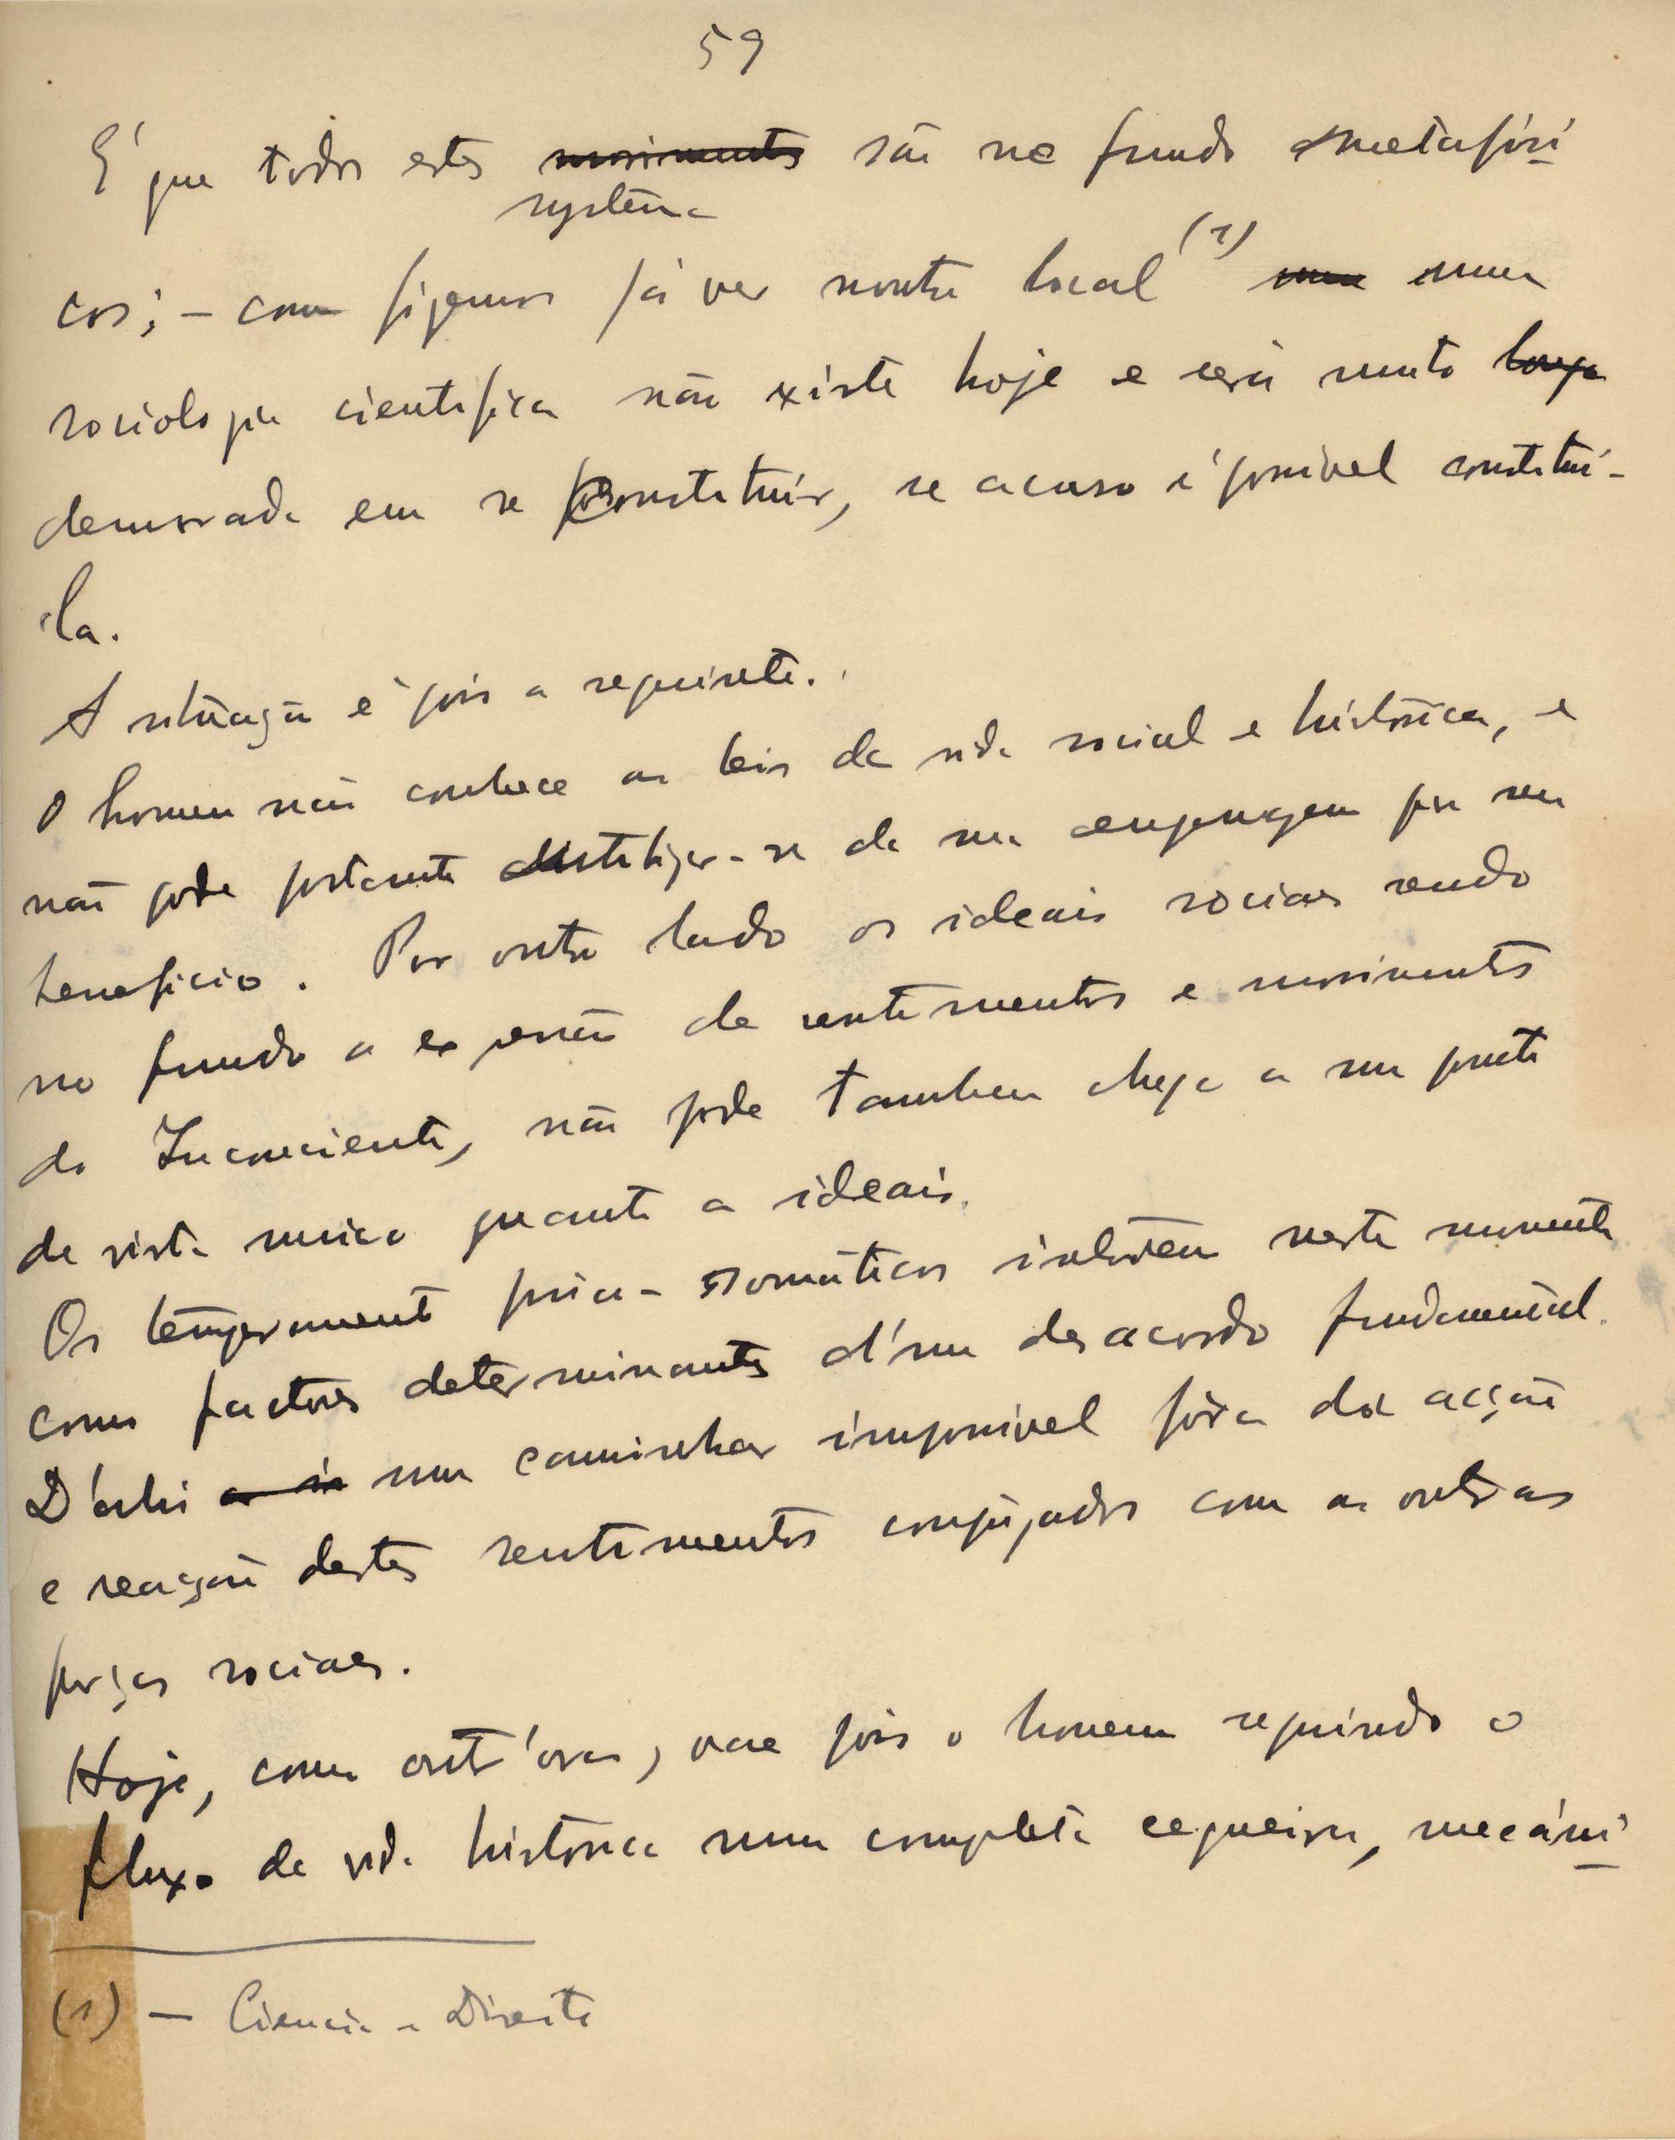 59
É que todos estes movimentos são no fundo metafisi
systema
cos; – como fizemos já ver noutro local (1) uma uma
sociologia cientifica não existe hoje e será muito longa
demorada em se constituir, se acaso é possivel constitui-
la.
A situação é pois a seguinte.
O homem não conhece as leis da vida social e histórica, e
não pode portanto utilizar-se da sua engrenagem por seu
beneficio. Por outro lado os ideais sociaes sendo
no fundo a expressão de sentimentos e movimentos
do Inconsciente, não pode tambem chegar a um ponto
de vista unico quanto a ideais.
Os temperamentos psico-somáticos intervêm neste momento
como factores determinantes d'um desacordo fundamental.
D'ahi um caminhar impossivel fóra da acção
e reação destes sentimentos conjugados com as outras
forças sociaes.
Hoje, como outr'ora, vae pois o homem seguindo o
fluxo da vida historica numa completa cegueira, mecáni
(1) — Ciencia e Direito